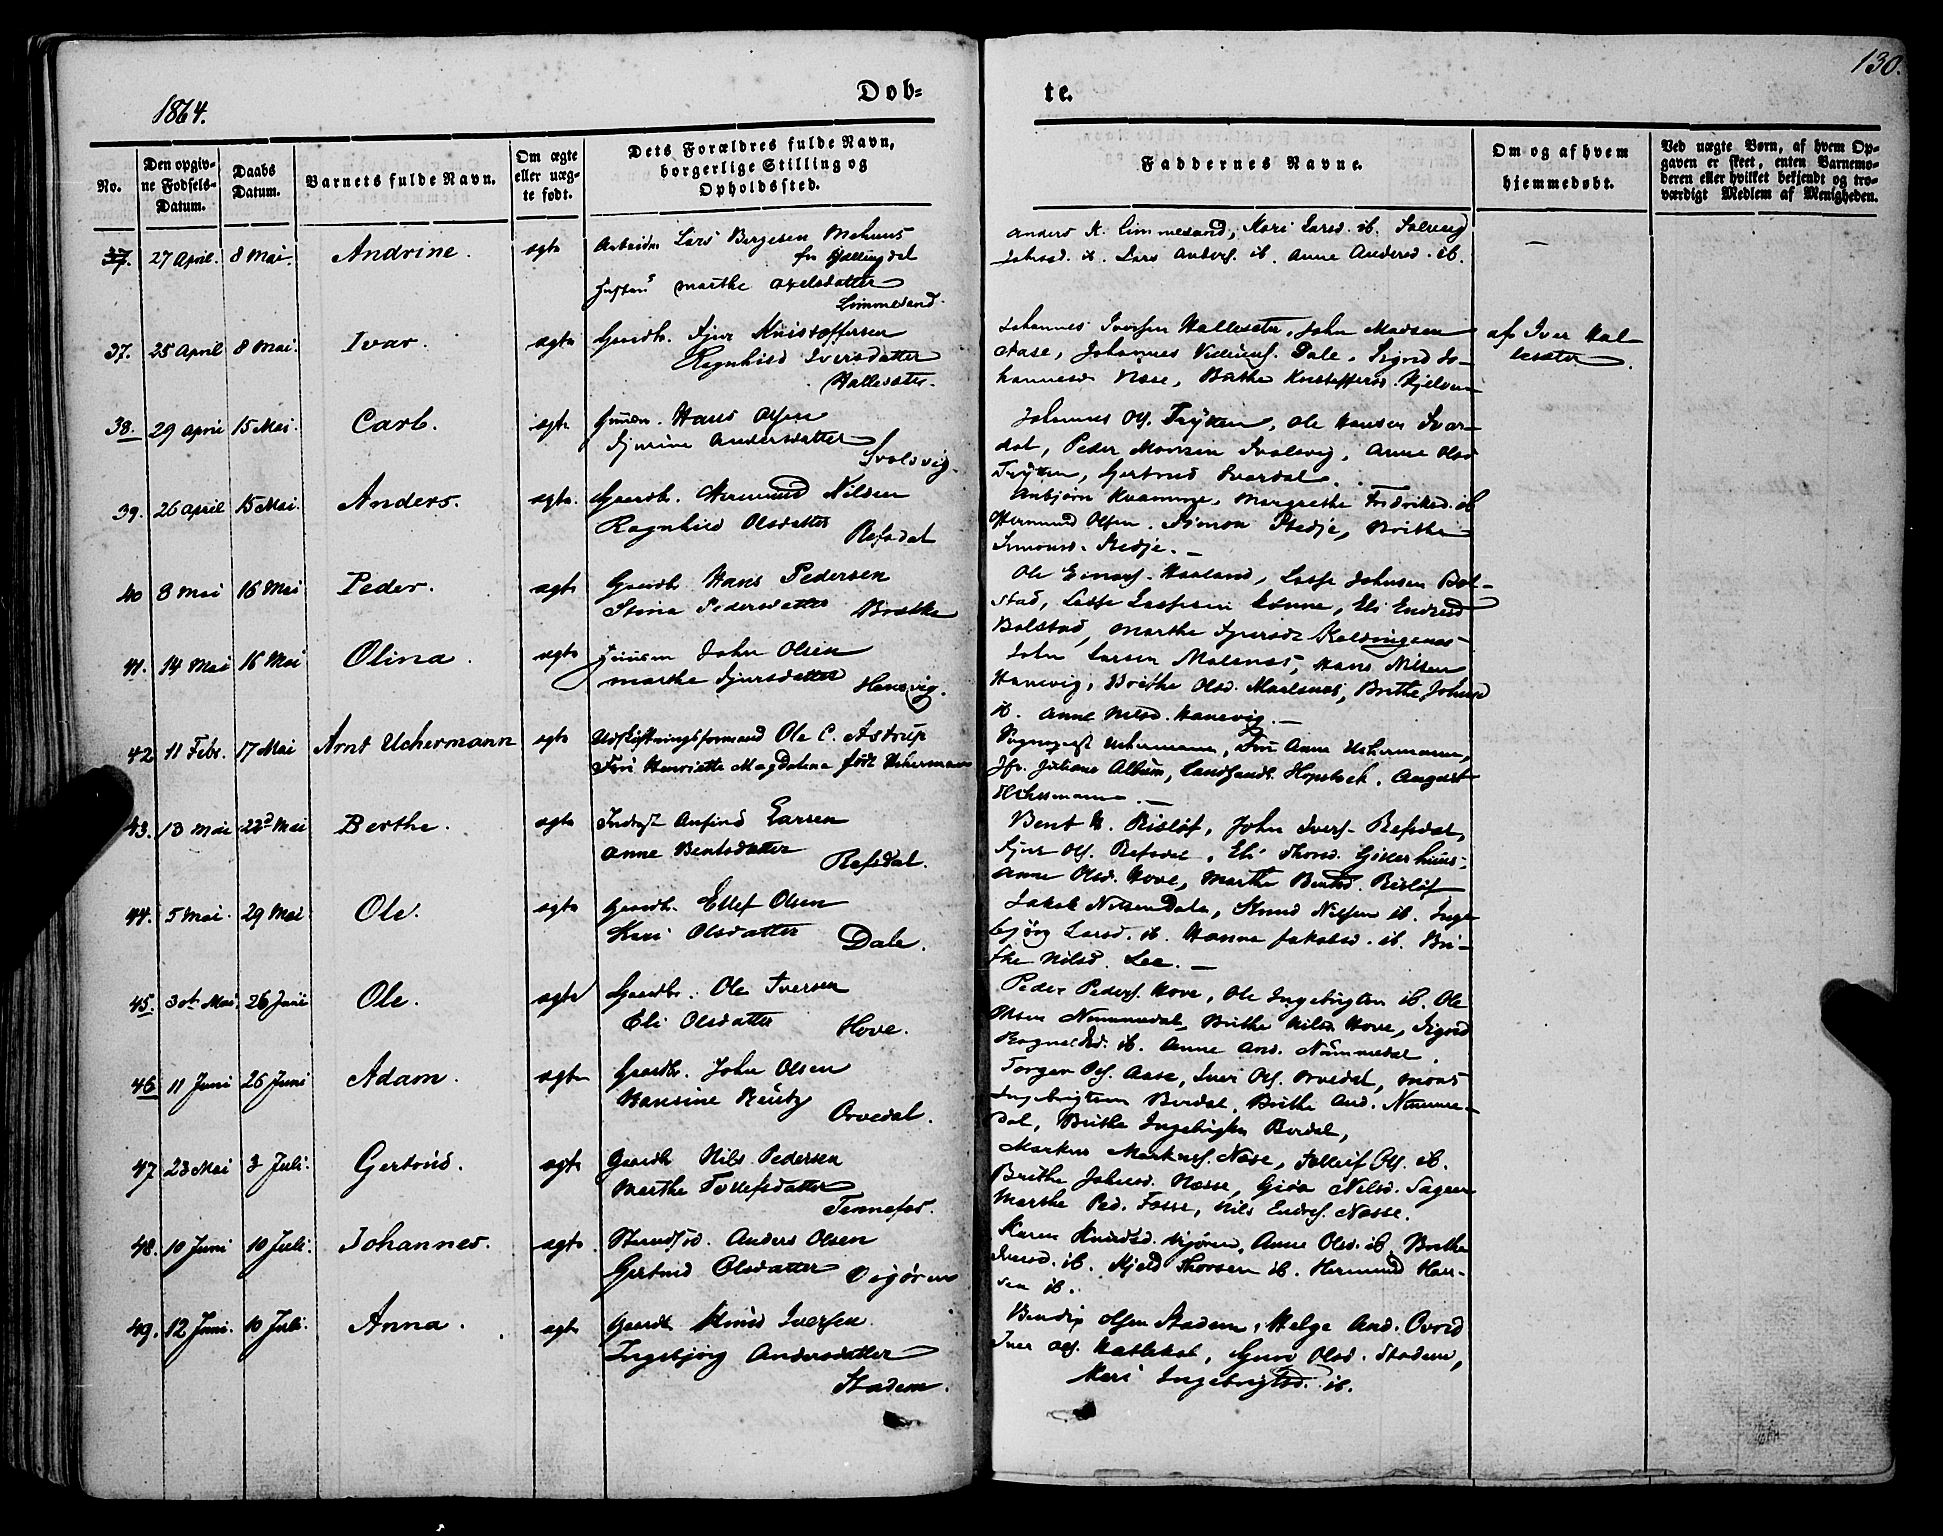 130.
1864.
Dob-
te.
No.
Den opgiv-
ne Fødsels-
Datum.
Daabs
Datum.
Barnets fulde Navn.
Om ægte
eller uæg-
te født.
Dets Forældres fulde Navn,
borgerlige Stilling og
Opholdssted.
Faddernes Navne.
Om og af hvem
hjemmedøbt.
Ved uægte Børn, af hvem Op-
gaven er skeet, enten Barnemo-
deren eller hvilket bekjendt og tro-
værdigt Medlem af Menigheden.
37. 27 April. 8 Mai. Andrine. ægte
Lars Bergesen
fra Hallingdal
Marthe Axelsdatter
Limmesand.
Anders K. Limmesand, Kari Larsd. ib. Solveig
Johnsd. ib. Lars Anders. ib. Anne Andersd. ib.
—
37. 25 April 8 Mai. Ivar. ægte
Gaardbr. Sjur Kristoffersen
Ragnhild Iversdatter
Hallesæter.
Johannes Iversen Hallesæter, John Madsen
Nase, Johannes Dale, Sigrid Jo-
hannesd. Nase, Brithe
af Iver Hal-
lesæter.
38. 29 April 15 Mai. Carl. ægte
Hans Olsen
Sjurine Andersdatter
Svolsvig.
Johannes Ols. Ole Hansen Svar-
dal, Peder Monsen Svolsvig, Anne Olsd.
Gertrud Svardal.
39. 26 April 15 Mai. Anders. ægte.
Gaardbr. Hermund Nilsen
Ragnhild Olsdatter
Refsdal
Anbjørn Kvamme, Margrethe Fredriksd. ib.
Hermund Olsen, Simon Stedje, Brithe
Simonsd. Stedje. —
40 8 Mai 16 Mai Peder. ægte
Gaardbr. Hans Pedersen
Stina Pedersdatter
Brække
Ole Einars. Haaland, Lasse Johnsen Bol-
stad, Lasse Lassesen Lønne, Eli Endresd.
Bolstad, Marthe Sjursd.
41. 14 Mai 16 Mai Olina. ægte
John Olsen
Marthe Sjursdatter
Hanevig.
John Larsen Malsnæs, Hans Nilsen
Hanevig, Brithe Olsd. Maalsnæs, Brithe Johnsd.
ib. Anne Nilsd. Hanevig. —
42 11 Febr. 17 Mai Arnt Uchermann ægte
Udskiftningsformand Ole C. Astrup
Henriette Magdalena født Uchermann
Uchermann, Anna Uchermann,
Jfr. Juliane Album, Hopstock, August
Uchermann. —
43. 13 Mai 22d Mai Berthe. ægte
Inderst Anfind Larsen
Anne Bentsdatter
Refsdal.
Bent H. Risløf, John Ivers. Refsdal,
Sjur Ols. Refsdal, Eli Thorsd.
Anne Olsd. Hove, Marthe Bentsd. Risløf
44. 5 Mai. 29 Mai Ole. ægte
Gaardbr. Ellef Olsen
Kari Olsdatter
Dale.
Jakob Nilsen Dale, Knud Nilsen ib. Inge-
bjørg Larsd. ib. Hanna Jakobsd. ib. Bri-
the Nilsd. Lee. —
45. 30t Mai. 26 Juni Ole. ægte
Gaardbr. Ole Iversen
Eli Olsdatter
Hove.
Peder Peders. Hove, Ole Ingebrigtsen ib. Ole
Olsen Nummedal, Brithe Nilsd. Hove, Sigrid
ib. Anne And. Nummedal.
46 11 Juni 26 Juni Adam. ægte
Gaardbr. John Olsen
Hansine
Orvedal.
Torger Ols. Aase, Iver Ols. Orvedal, Mons
Ingebrigtsen Berdal, Brithe And. Numme-
dal, Brithe Ingebrigtsd. Berdal,
47. 23 Mai 3 Juli. Gertrud. ægte
Gaardbr. Nils Pedersen
Marthe Tollefsdatter
Tennefos.
Markus Markuss. Nase, Tollef Ols. ib.
Brithe Johnsd. Næsse, Nilsd.
Marthe Ped. Fosse, Nils Endres. Næsse.
48. 10 Juni 10 Juli. Johannes. ægte
Strandsid. Anders Olsen
Gertrud Olsdatter
Karen Knudsd. Anne Olsd. ib. Brithe
ib. Kjeld Thorsen ib. Hermund Han-
sen ib.
49. 12 Juni. 10 Juli. Anna. ægte
Gaardbr. Knud Iversen.
Ingebjørg Andersdatter
Stadem.
Bendix Olsen Stadem, Helge And. Ovrid
Iver Ols. Guri Olsd. Stadem,
Kari Ingebrigtsd. ib.